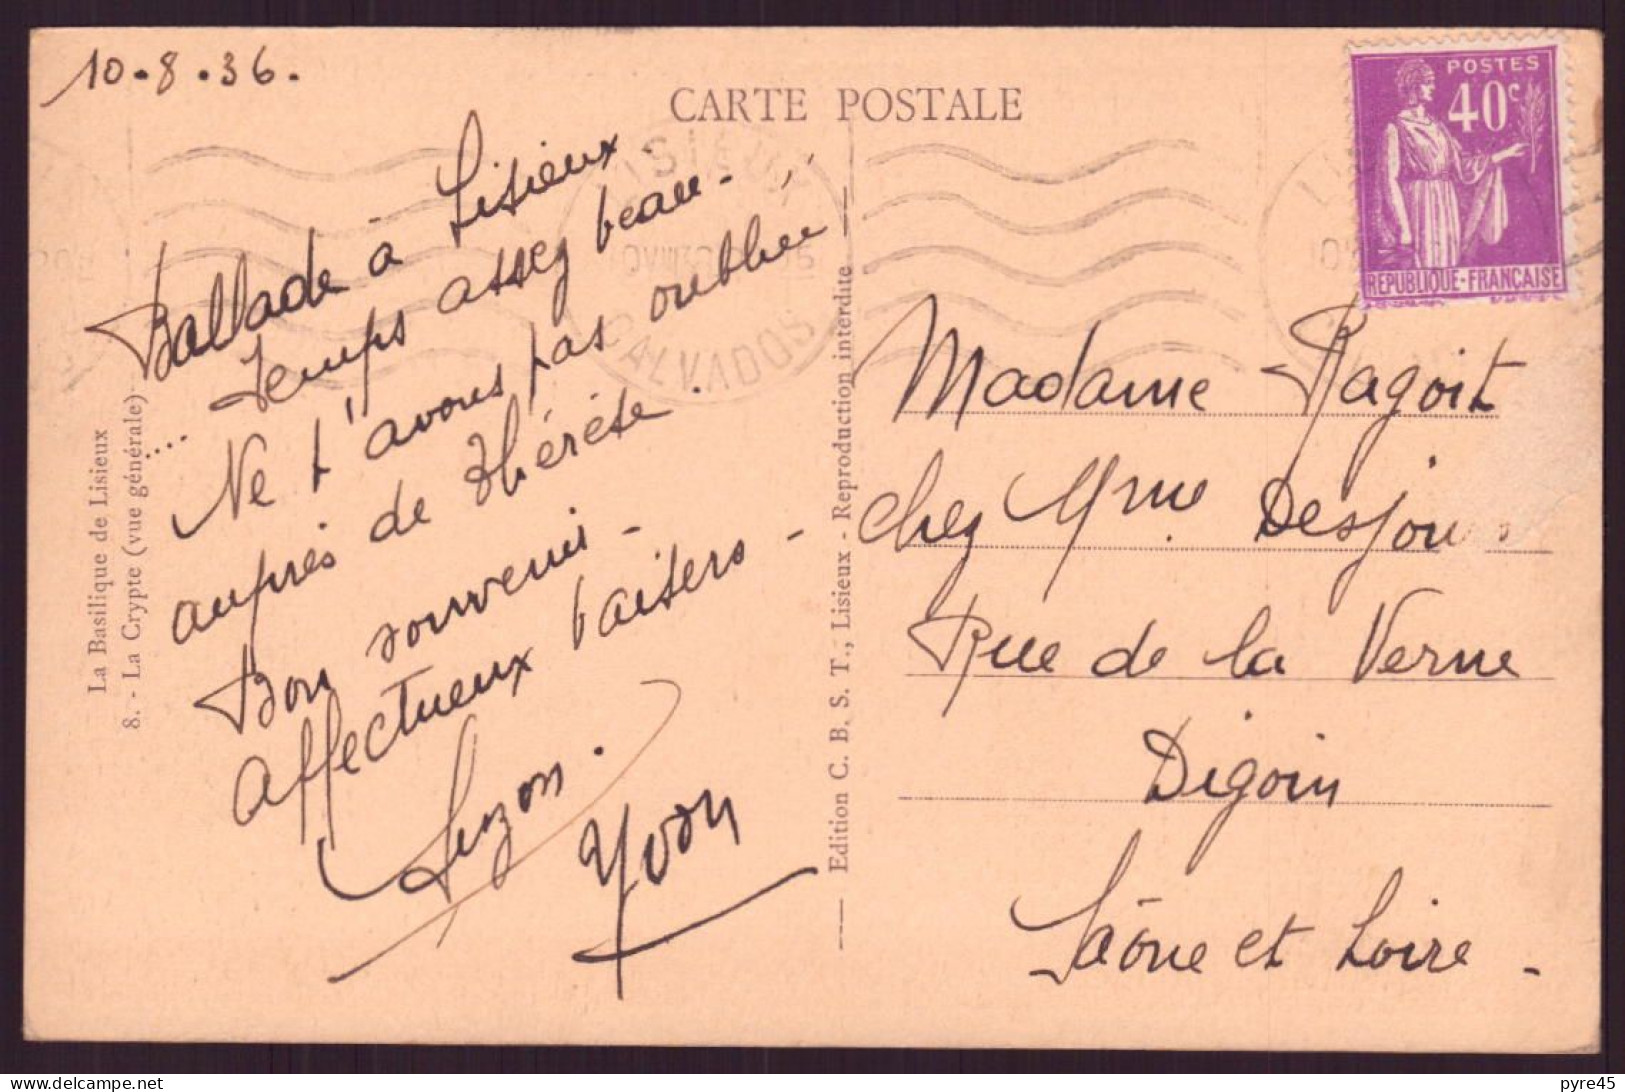 10.8.36.
CARTE POSTALE
POSTES
40c
REPUBLIQUE-FRANÇAISE
LISIEUX
CALVADOS
Ballade à Lisieux
... temps assez beau -
Ne t'avons pas oubliée
auprès de Thérèse.
Bon souvenir -
Affectueux baisers -
Suzon.
Yvon
Madame Ragoit
chez Mme. Desjou
Rue de la Verne
Digoin
Saône et Loire -
La Basilique de Lisieux
8. - La Crypte (vue générale)
Edition C. B. S. T., Lisieux - Reproduction interdite
delcampe.net
pyre45